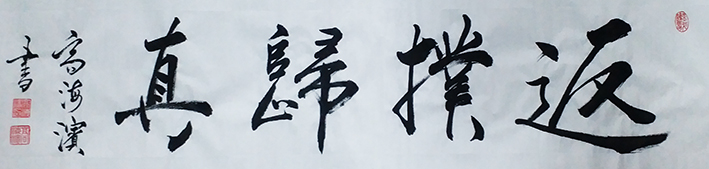 返撲歸真
高海濱
書